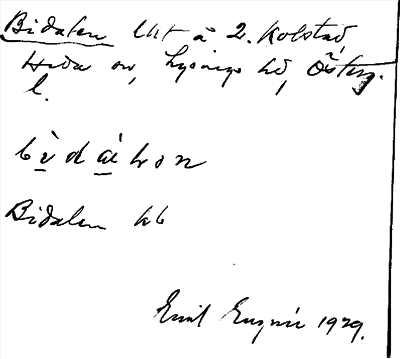 Bidalen lht å 2. Kolstad,
Heda sn, Lysings hd, Österg.
l.
bìdàlɘn
Bidalen hb
Emil 1929.